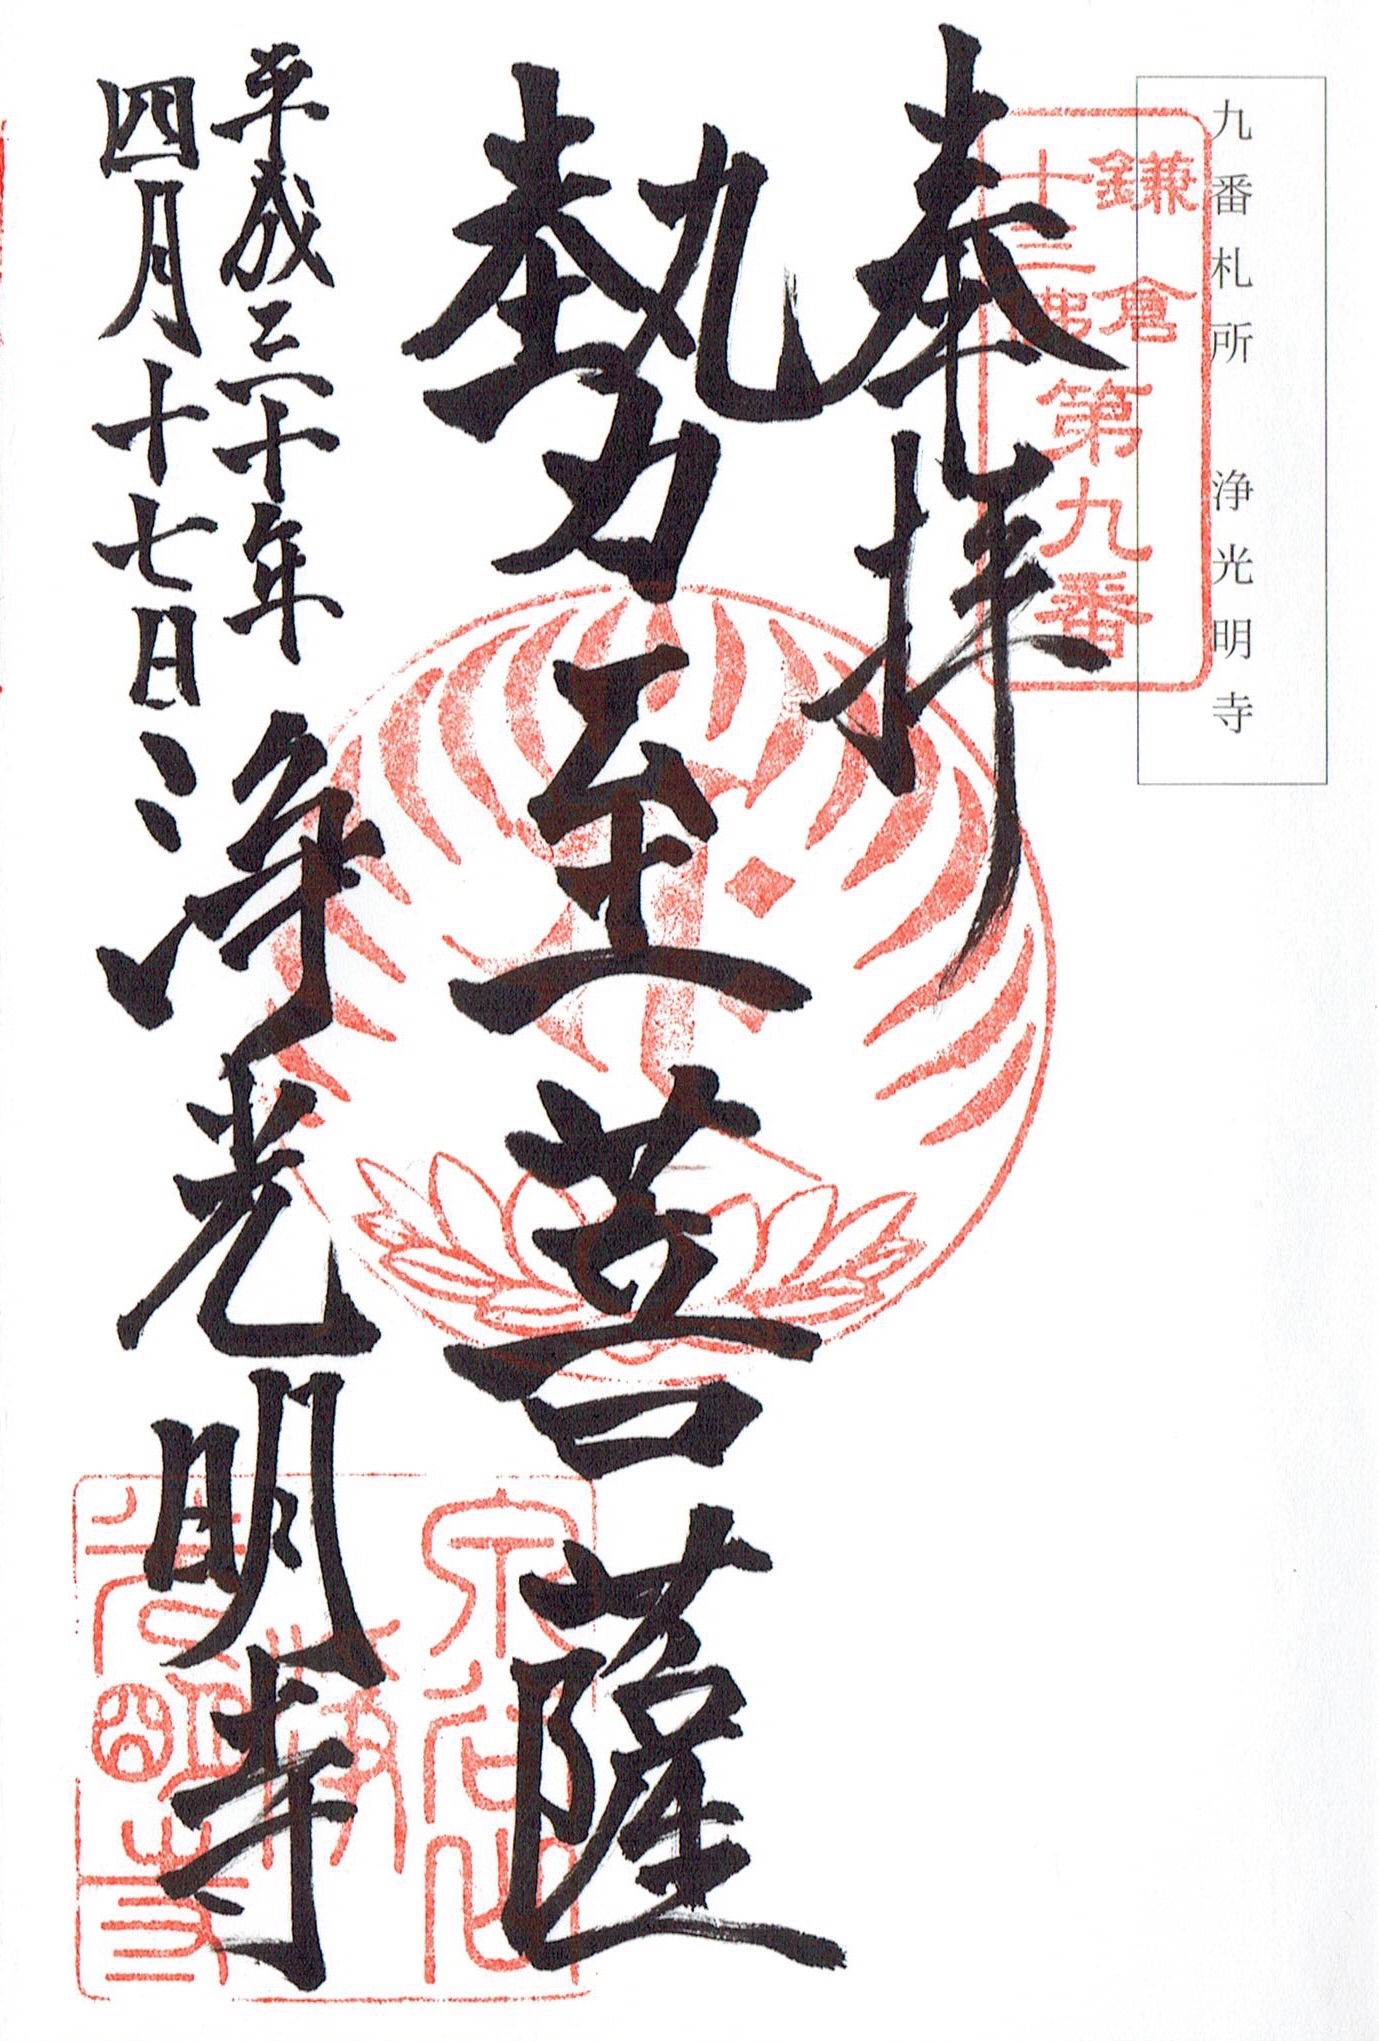 九番札所 浄光明寺
鎌倉
十三佛
第九番
奉拝
勢至菩薩
平成三十年
四月十七日
浄光明寺
泉谷山
光明寺